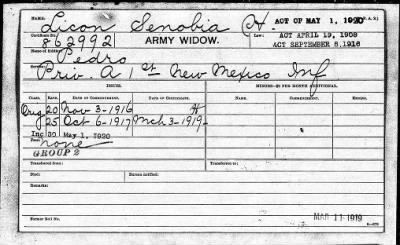 Licon Senobia H. ACT OF MAY 1, 1920
Certificate No. 862992 ARMY WIDOW. Law: ACT APRIL 19, 1908
ACT SEPTEMBER 8, 1916
Name of Soldier: Pedro
Service: Priv. A 1st New Mexico Inf
ISSUED. MINORS—$2 PER MONTH ADDITIONAL.
CLASS. RATE. DATE OF COMMENCEMENT. DATE OF COMMENCEMENT. NAME. COMMENCEMENT. ENDING.
Orig 20 Nov 3-1916
25 Oct 6-1917 Mch 3-1919
Inc 30 May 1, 1920
Fee: none
GROUP 2
Transferred from: Transferred to:
Died: Bureau notified:
Remarks:
Former Roll No. MAR 11 1919